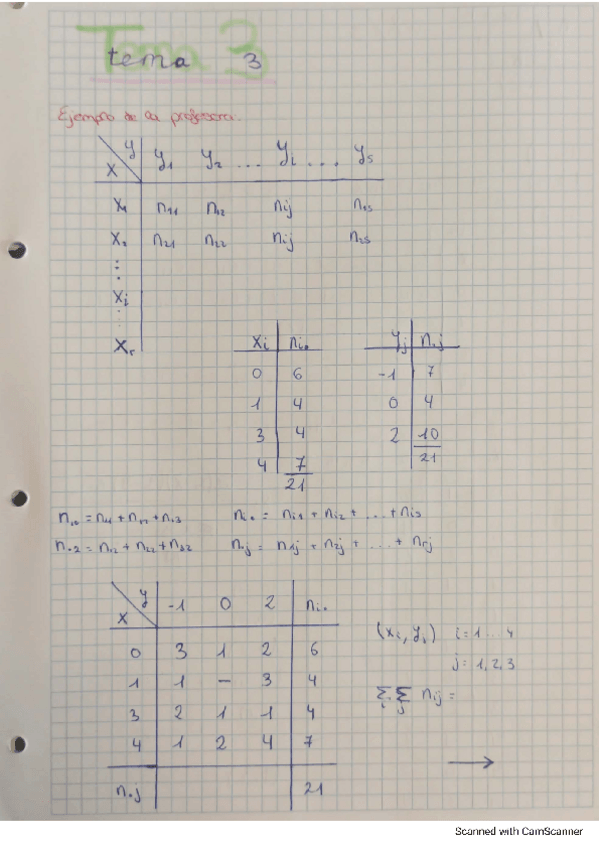 Tema 3
tema 3
Ejemplo de la profesora.
X Y y₁ y₂ ... yᵢ ... yₛ
X₁ n₁₁ n₁₂ nij n₁s
X₂ n₂₁ n₂₂ nij n₂s
⋮
Xi
⋮
Xr
Xi ni.
0 6
1 4
3 4
4 7
21
yj n.j
-1 7
0 4
2 10
21
ni. = ni1 + ni2 + ... + nis
n.j = n1j + n2j + ... + nrj
X Y -1 0 2 ni.
0 3 1 2 6
1 1 – 3 4
3 2 1 1 4
4 1 2 4 7
n.j 21
(xi, yi) i = 1 ... 4
j = 1, 2, 3
Σi Σj nij =
→
Scanned with CamScanner